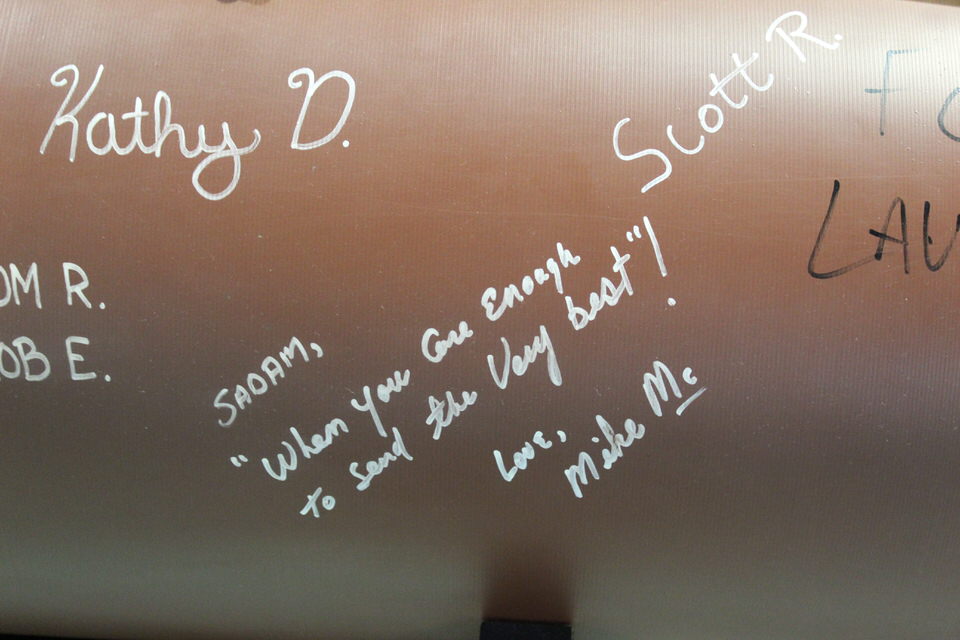 Kathy D.
Scott R.
F
LAU
OM R.
OB E.
SADAM,
"When You Care Enough
to Send the Very best"!
Love,
Mike Mc